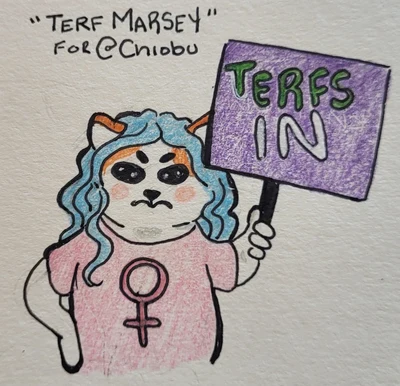 "TERF MARSEY"
FOR @Chiobu
TERFS
IN